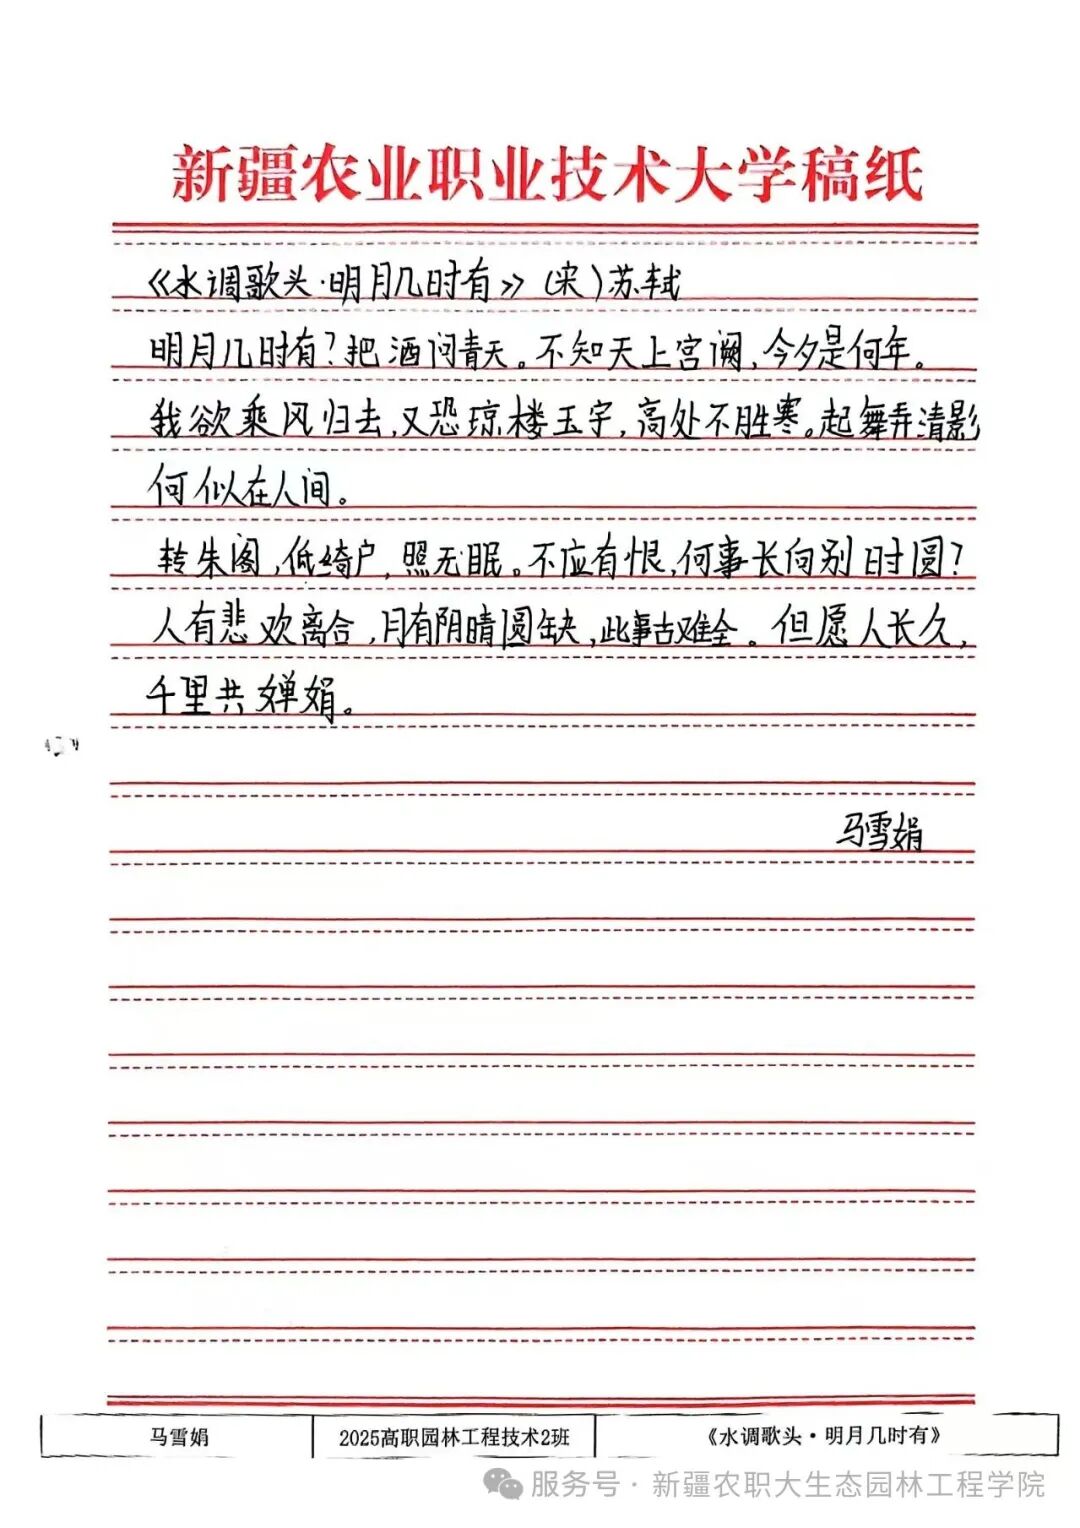 新疆农业职业技术大学稿纸
《水调歌头·明月几时有》（宋）苏轼
明月几时有？把酒问青天。不知天上宫阙，今夕是何年。
我欲乘风归去，又恐琼楼玉宇，高处不胜寒。起舞弄清影
何似在人间。
转朱阁，低绮户，照无眠。不应有恨，何事长向别时圆？
人有悲欢离合，月有阴晴圆缺，此事古难全。但愿人长久，
千里共婵娟。
马雪娟
马雪娟 2025高职园林工程技术2班 《水调歌头·明月几时有》
服务号·新疆农职大生态园林工程学院